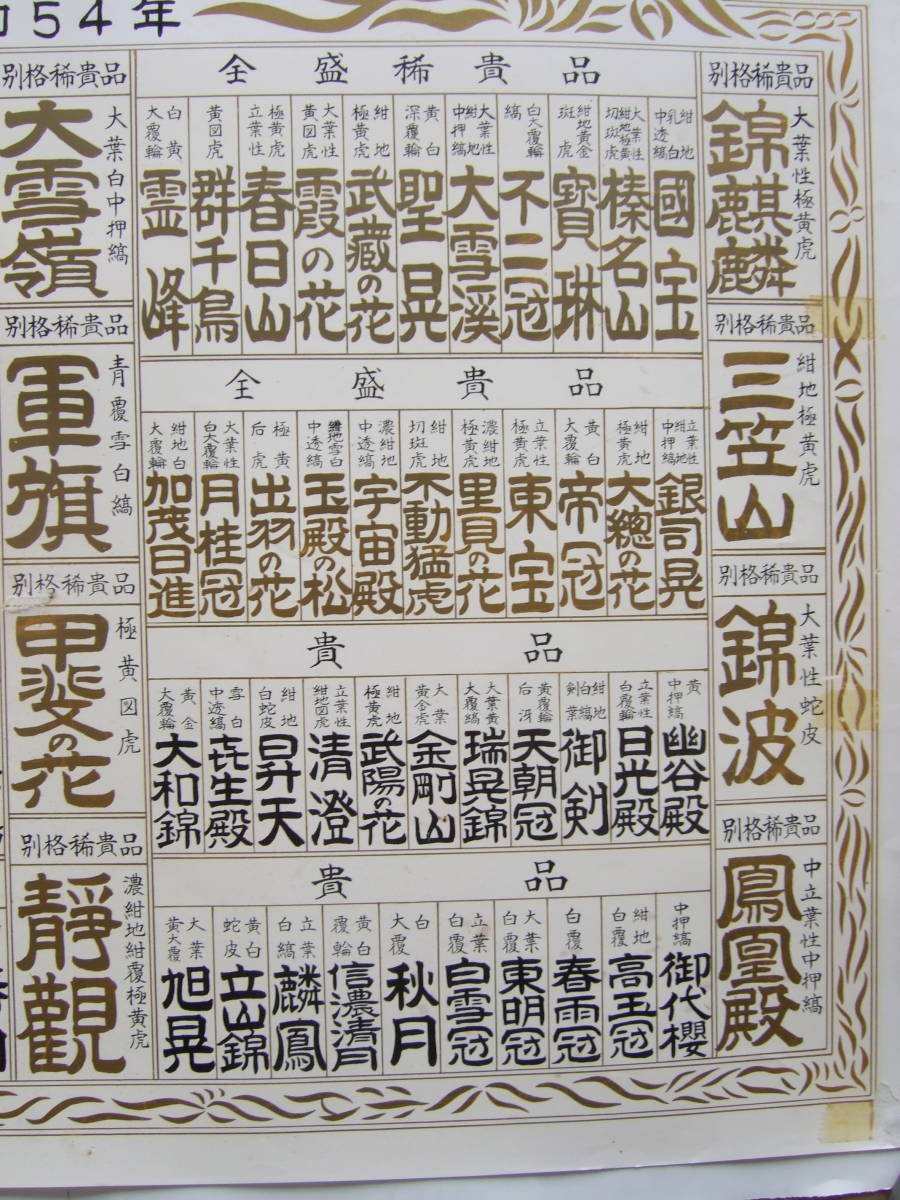 54年
別格稀貴品
大葉性極黄虎
錦麒麟
別格稀貴品
紺地極黄虎
三笠山
別格稀貴品
大葉性蛇皮
錦波
別格稀貴品
中立葉性中押縞
鳳凰殿
全盛稀貴品
紺地乳白中透縞
國宝
大葉性紺地極黄切斑虎
榛名山
紺地黄金斑虎
寶琳
白大覆輪縞
不二冠
大葉性紺地中押縞
大雪溪
黄白深覆輪
聖晃
紺地極黄虎
武藏の花
大葉性黄図虎
霞の花
極黄虎立葉性
春日山
黄図虎
群千鳥
白黄大覆輪
霊峰
全盛貴品
立葉性紺地中押縞
銀司晃
紺地極黄虎
大總の花
黄白大覆輪
帝冠
立葉性極黄虎
東宝
濃紺地極黄虎
里見の花
紺地切斑虎
不動猛虎
濃紺地中透縞
宇宙殿
紺地雪白中透縞
玉殿の松
極黄后虎
出羽の花
大葉性白大覆輪
月桂冠
紺地白大覆輪
加茂日進
貴品
黄中押縞
幽谷殿
立葉性白覆輪
日光殿
紺地白縞剣葉
御剣
黄覆輪后冴
天朝冠
大葉黄大覆縞
瑞晃錦
大葉黄金虎
金剛山
紺地極黄虎
武陽の花
立葉性紺地図虎
清澄
紺地白蛇皮
昇天
雪白中透縞
㐂生殿
黄金大覆輪
大和錦
貴品
中押縞
御代櫻
紺地白覆
高玉冠
白覆
春雨冠
大葉白覆
東明冠
立葉白覆
白雪冠
白大覆
秋月
黄白覆輪
信濃清月
立葉白縞
麟鳳
黄白蛇皮
立山錦
大葉黄大覆
旭晃
別格稀貴品
大葉白中押縞
大雪嶺
別格稀貴品
青覆雪白縞
軍旗
別格稀貴品
極黄図虎
甲斐の花
別格稀貴品
濃紺地紺覆極黄虎
靜觀